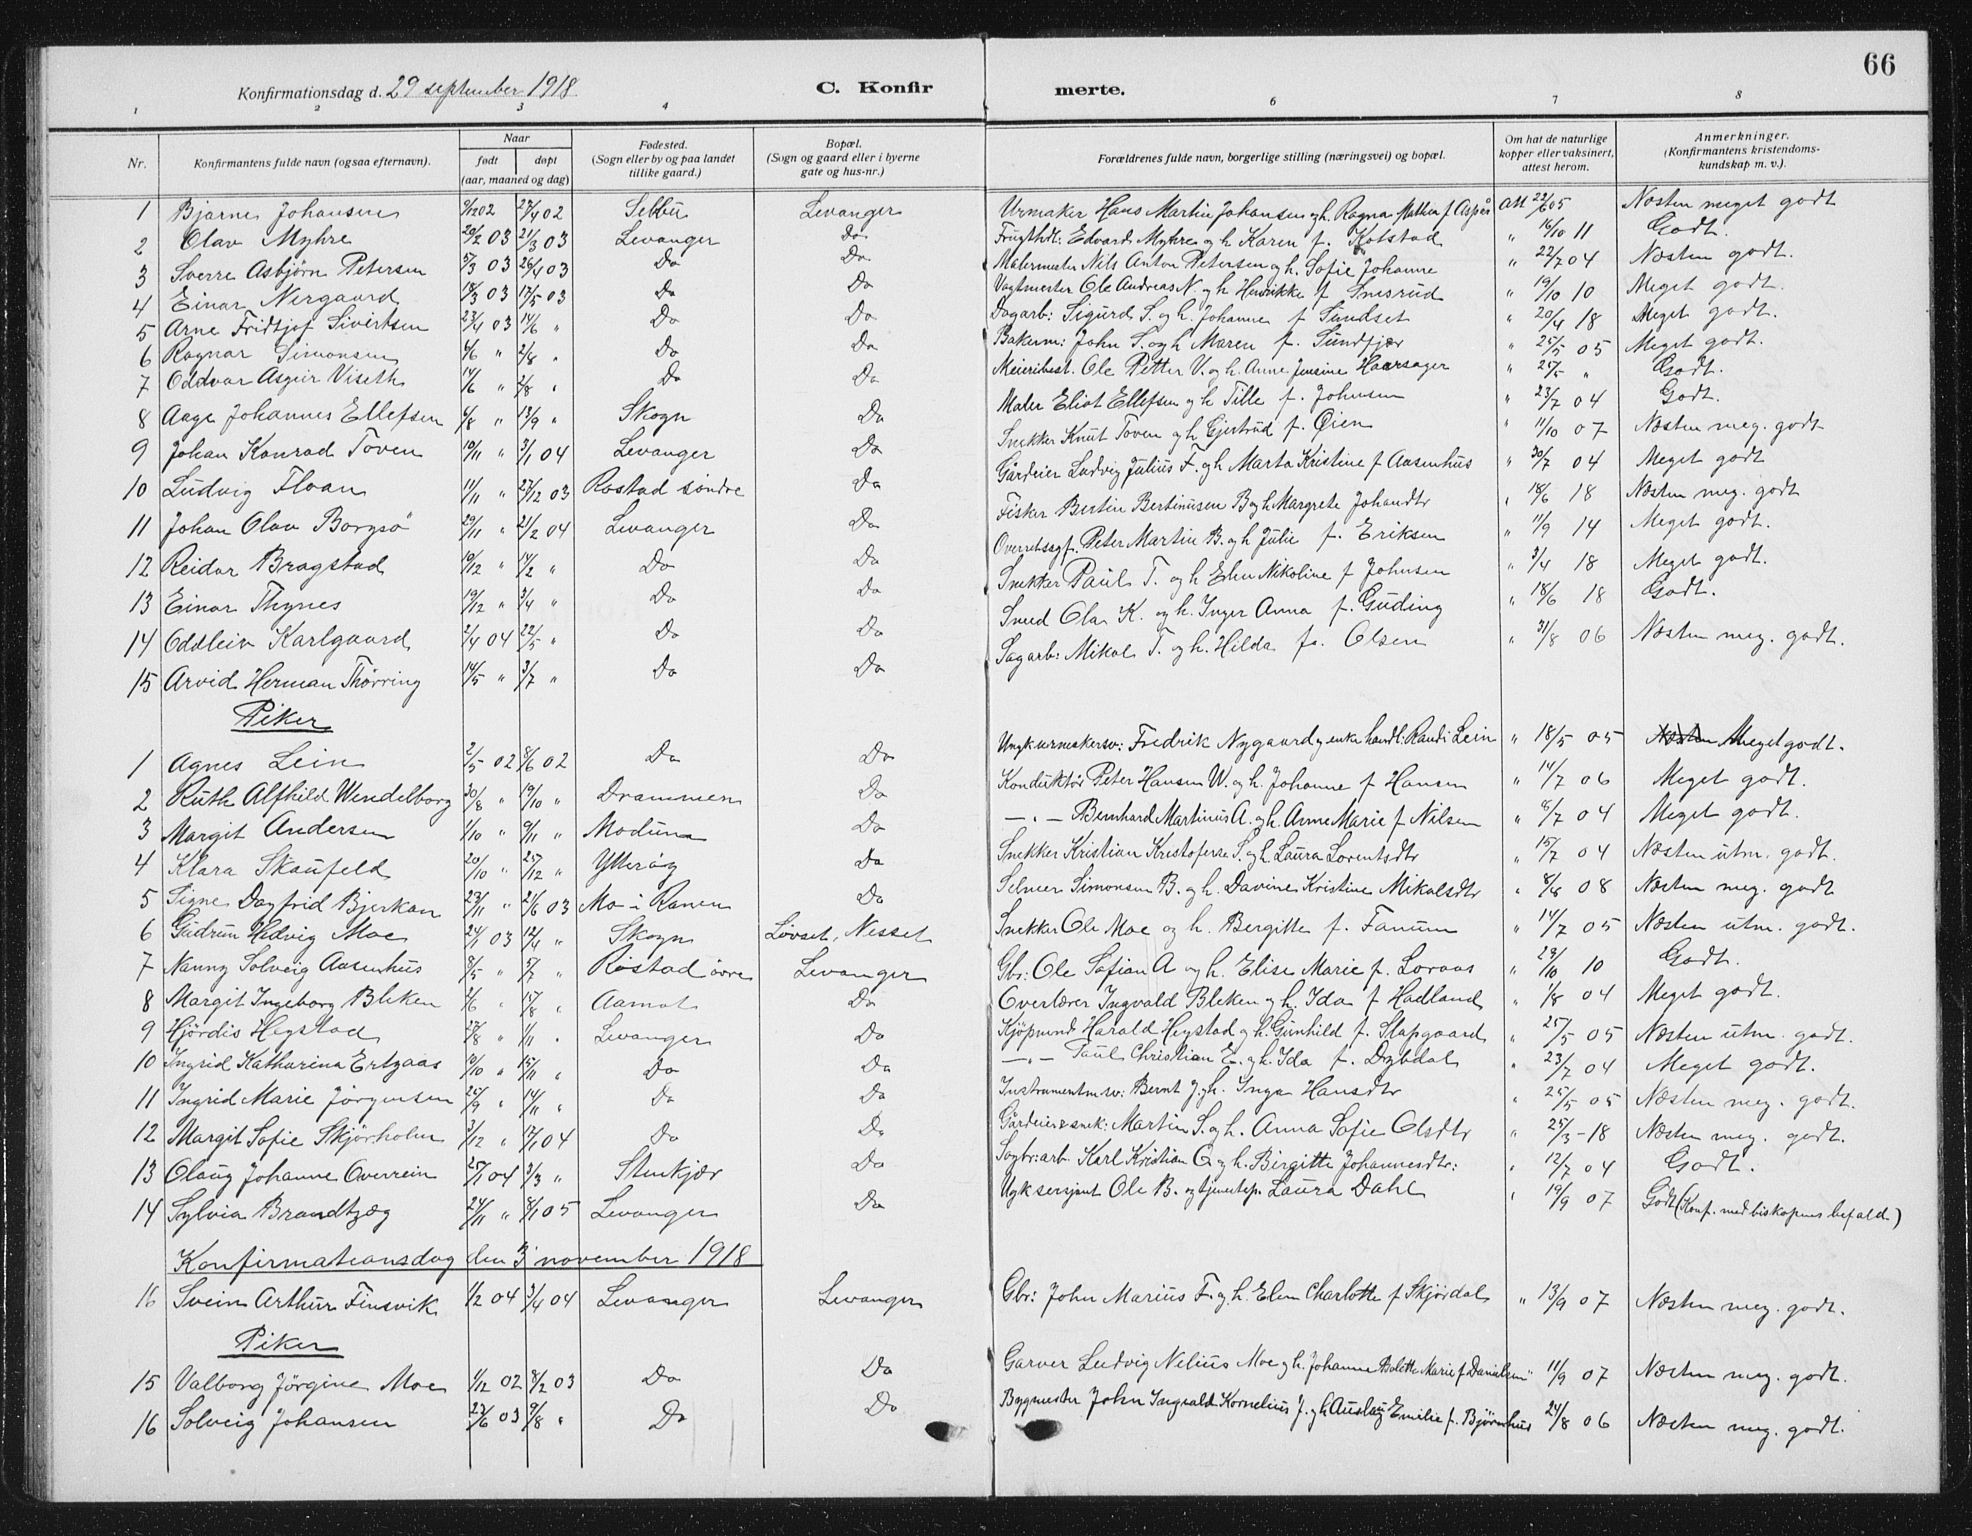 66
Konfirmationsdag d. 29 september 1918 C. Konfirmerte.
1 2 3 4 6 7 8
Nr. Konfirmantens fulde navn (ogsaa efternavn). Naar født døpt (aar, maaned og dag) Fødested. (Sogn eller by og paa landet tillike gaard.) Bopæl. (Sogn og gaard eller i byerne gate og hus-nr.) Forældrenes fulde navn, borgerlige stilling (næringsvei) og bopæl. Om hat de naturlige kopper eller vaksinert, attest herom. Anmerkninger. (Konfirmantens kristendomskundskap m. v.).
1 Bjarne Johansen 9/12 02 27/4 02 Selbu Levanger Urmaker Hans Martin Johansen og h. Ragna Mathea f. Aspås Att 22/6 05 Næsten meget godt
2 Olav Myhre 20/2 03 21/3 03 Levanger Do Frugthdl: Edvard Myhre og h. Karen f. Kolstad " 16/10 11 Godt.
3 Sverre Asbjørn Petersen 5/3 03 26/4 03 Do Do Malermester Nils Anton Petersen og h. Sofie Johanne " 22/7 04 Næsten godt.
4 Einar Nergaard 18/3 03 17/5 03 Do Do Vagtmester Ole Andreas N. og h. Henrikke f. Snesrud " 19/10 10 Meget godt.
5 Arne Fridtjof Sivertsen 23/4 03 14/6 " Do Do Dagarb: Sigurd S. og h. Johanne f. Sundset " 20/4 18 Meget godt.
6 Ragnar Simonsen 4/6 " 2/8 " Do Do Bakerm: John S. og h. Maren f. Sundfjær " 25/5 05 Meget godt.
7 Oddvar Asgeir Viseth 14/6 " 2/8 " Do Do Meieribest. Ole Petter V. og h. Anne Jensine Haarsager " 25/5 " Godt.
8 Aage Johannes Ellefsen 4/8 " 13/9 " Skogn Do Maler Eliot Ellefsen og h. Tille f. Johnsen " 23/7 04 Godt.
9 Johan Konrad Toven 10/11 " 3/1 04 Levanger Do Snekker Knut Toven og h. Gjertrud f. Øien " 11/10 07 Næsten meg. godt
10 Ludvig Floan 11/11 " 27/12 03 Rostad søndre Do Gårdeier Ludvig Julius F. og h. Marta Kristine f. Aasenhus " 30/7 04 Meget godt
11 Johan Olav Borgsö 29/11 " 21/2 04 Levanger Do Fisker Bertin Bertinusen B. og h. Margrete Johandtr " 18/6 18 Næsten meg. godt
12 Reidar Bragstad 19/12 " 14/2 " Do Do Overretssgf. Peter Martin B. og h. Julie f. Eriksen " 11/9 14 Meget godt.
13 Einar Thynes 19/12 " 3/4 " Do Do Snekker Paul T. og h. Elen Nikoline f. Johnsen " 3/4 18 Meget godt.
14 Oddleiv Karlgaard 2/4 04 22/5 " Do Do Smed Ola K. og h. Inger Anna f. Guding " 18/6 18 Godt.
15 Arvid Herman Thørring 14/5 " 3/7 " Do Do Sagarb: Mikal T. og h. Hilda fs. Olsen " 31/8 06 Næsten meg. godt.
Piker
1 Agnes Lein 2/5 02 8/6 02 Do Do Ungk urmakersv: Fredrik Nygaard og enke handl: Randi Lein " 18/5 05 Næsten Meget godt.
2 Ruth Alfhild Wendelborg 30/8 " 19/10 " Drammen Do Konduktör Peter Hansen W. og h. Johanne f. Hansen " 14/7 06 Meget godt.
3 Margit Andersen 1/10 " 9/11 " Modum Do —"— Bernhard Martinius A. og h. Anne Marie f. Nilsen " 8/7 04 Meget godt.
4 Klara Skaufeld 20/10 " 25/12 " Ytterøy Do Snekker Kristian Kristoferse S. og h. Laura Lorentsdtr " 15/7 04 Næsten utm. godt.
5 Signe Dagfrid Bjerkan 23/11 " 21/6 03 Mo i Ranen Do Selmer Simonsen B. og h. Davine Kristine Mikalsdtr " 8/8 08 Næsten meg. godt
6 Gudrun Hedvig Moe 24/1 03 12/4 " Skogn Løvset, Nesset Snekker Ole Moe og h. Bergitte f. Fanum " 14/7 05 Næsten utm. godt.
7 Nanny Solveig Aasenhus 8/5 " 5/7 " Rostad øvre Levanger Gbr: Ole Sofian A. og h. Elise Marie f. Loraas " 29/10 10 Godt.
8 Margit Ingeborg Bleken 2/6 " 15/8 " Aamot Do Overlærer Ingvald Bleken og h. Ida f. Hadland " 1/8 04 Meget godt.
9 Hjördis Hegstad 27/8 " 1/11 " Levanger Do Kjöpmand Harald Hegstad og h. Gunhild f. Slapgaard " 25/5 05 Næsten utm. godt.
10 Ingrid Katharina Ertzaas 9/10 " 15/11 " Do Do —"— Paul Christian E. og h. Ida f. Dybdal " 23/7 04 Meget godt.
11 Ingrid Marie Jørgensen 25/9 " 14/11 " Do Do Instrumentm.sv: Bernt J. og h. Inga Hansdtr " 25/5 05 Næsten meg. godt.
12 Margit Sofie Skjörholm 3/12 " 17/1 04 Do Do Gårdeier & snek: Martin S. og h. Anna Sofie Olsdtr " 25/3 - 18 Næsten meg. godt.
13 Olaug Johanne Overrein 25/1 04 3/3 " Stenkjær Do Sagbr:arb. Karl Kristian O. og h. Birgitte Johannesdtr: " 12/7 04 Godt.
14 Sylvia Brandtzæg 24/11 " 8/1 05 Levanger Do Ugk sersjant Ole B. og tjenestep. Laura Dahl " 19/9 07 Godt (Konf. med biskopens befald.)
Konfirmationsdag den 3 november 1918
16 Svein Arthur Finsvik 1/2 04 3/4 04 Levanger Levanger Gbr: John Marius F. og h. Elen Charlotte f. Skjördal " 13/9 07 Næsten meg. godt.
Piker
15 Valborg Jörgine Moe 1/12 02 8/2 03 Do Do Garver Ludvig Nelius Moe og h. Johanne Bolette Marie f. Danielsen " 11/9 07 Næsten meg. godt.
16 Solveig Johansen 23/6 03 9/8 " Do Do Bygmester John Ingvald Kornelius J. og h. Auslaug Emilie f. Bjørnhus 24/8 06 Næsten meg. godt.